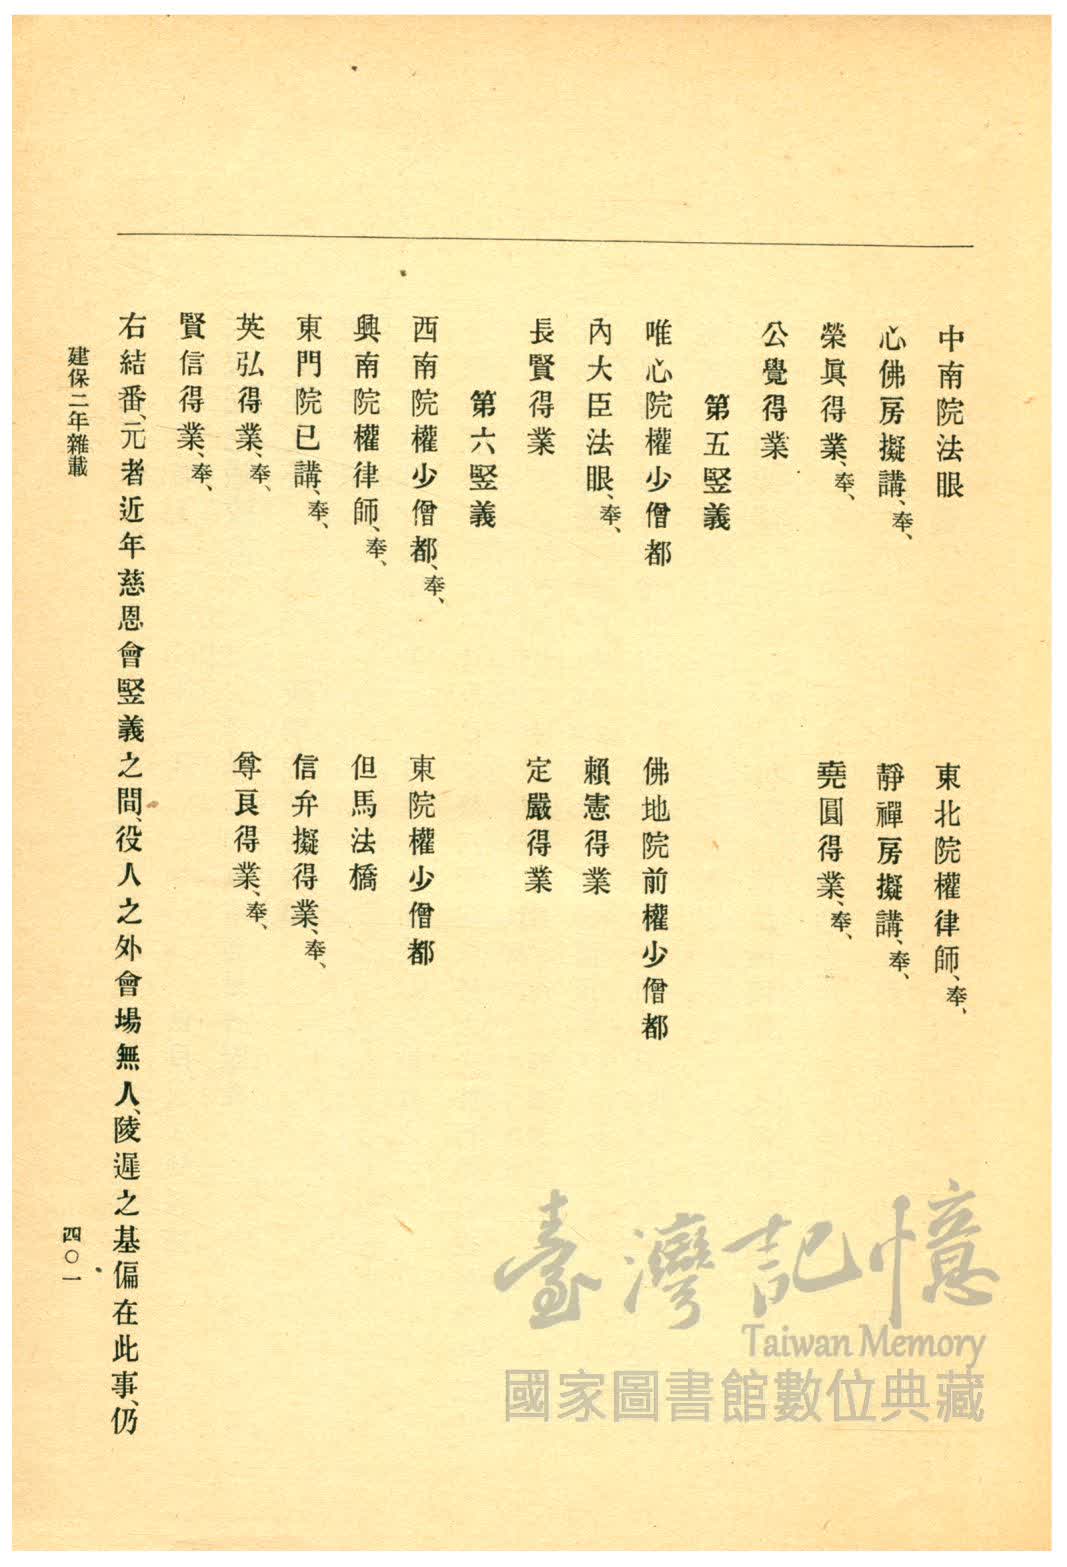 中南院法眼　東北院權律師、奉、
心佛房擬講、奉、　靜禪房擬講、奉、
榮眞得業、奉、　堯圓得業、奉、
公覺得業
第五竪義
唯心院權少僧都　佛地院前權少僧都
內大臣法眼、奉、　賴憲得業
長賢得業　定嚴得業
第六竪義
西南院權少僧都、奉、　東院權少僧都
興南院權律師、奉、　但馬法橋
東門院已講、奉、　信弁擬得業、奉、
英弘得業、奉、　尊良得業、奉、
賢信得業、奉、
右結番、元者近年慈恩會竪義之間、役人之外會場無人、陵遲之基偏在此事、仍
建保二年雜載
四〇一
臺灣記憶
Taiwan Memory
國家圖書館數位典藏